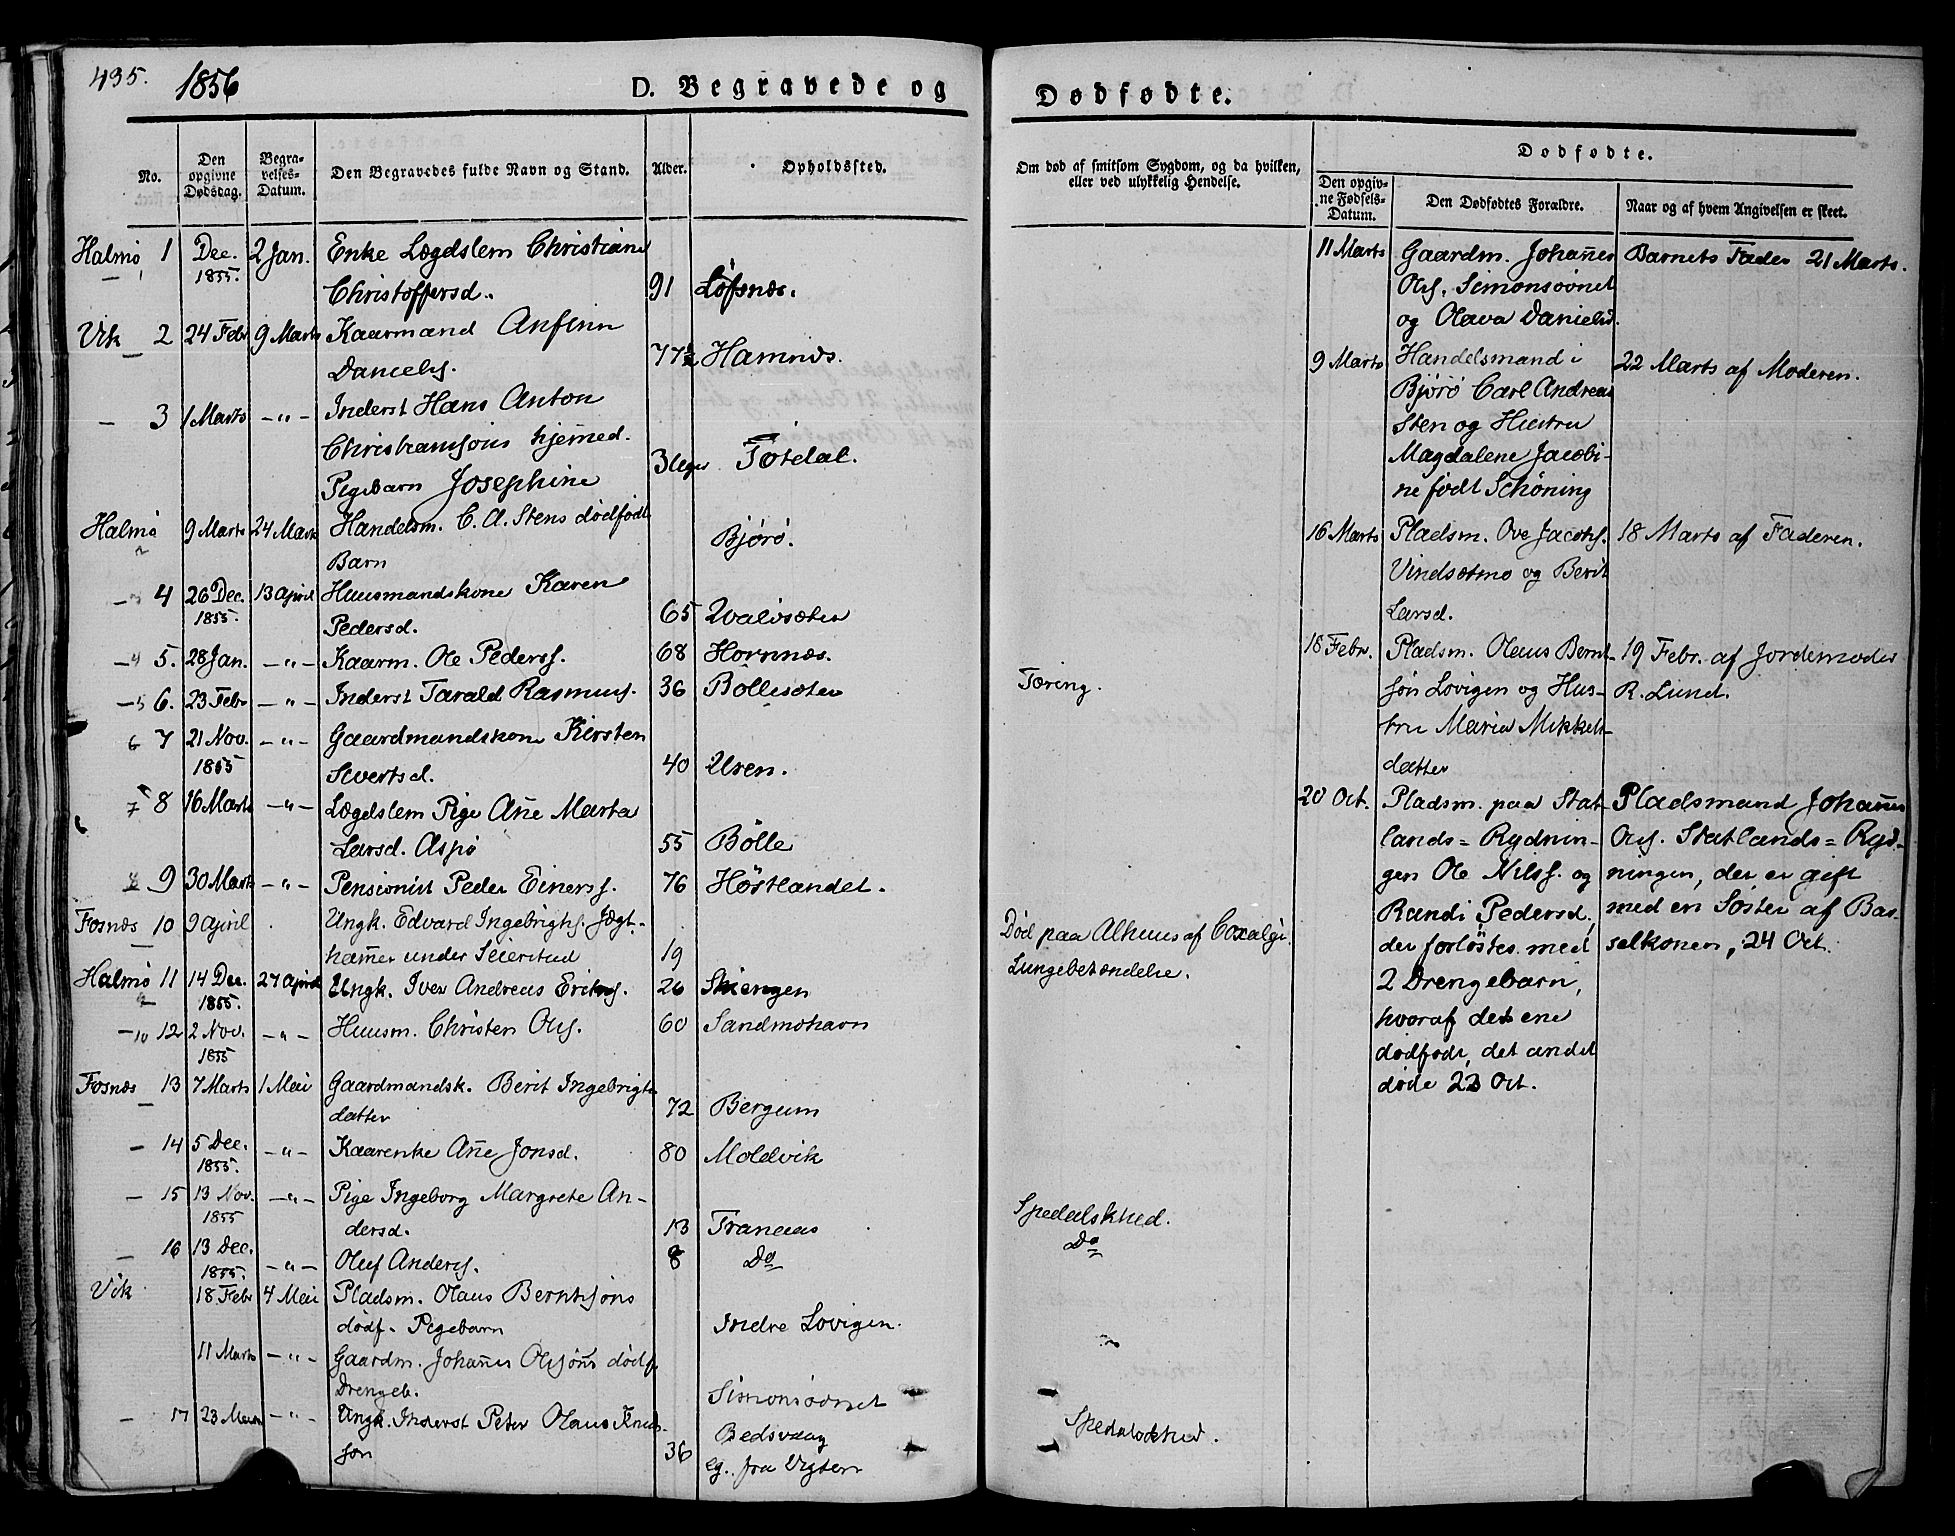 435. 1856 D. Begravede og
No. Den opgivne Dødsdag. Begravelses-Datum. Den Begravedes fulde Navn og Stand. Alder. Opholdssted.
Halmø 1 Dec. 2 Jan. Enke Lægdslem Christiane
1855. Christoffersd. 91 Löfsnæs.
Vik 2 24 Febr 9 Marts Kaarmand Anfinn
Daniels. 77½ Hamnæs.
— 3 1 Marts —"— Inderst Hans Anton
Christiansøns hjemed.
Pigebarn Josephine 3 Uger Fötdal.
Halmø 9 Marts 24 Marts Handelsm. C. A. Stens dödfödt
Barn Bjørø.
— 3 4 26 Dec. 13 April Huusmandskone Karen
1855. Pedersd. 65 Walvsæter
— 4 5. 28 Jan. —"— Kaarm. Ole Peders. 68 Hornnæs.
— 5 6. 23 Febr —"— Inderst Tarald Rasmuss. 36 Böllesæter
6 7 21 Nov. —"— Gaardmandskone Kirsten
1855 Sivertsd. 40 Uren.
7 8 16 Marts —"— Lægdslem Pige Ane Marta
Larsd. Aspö 55 Bölle
8 9 30 Marts —"— Pensionist Peder Einerss. 76 Höstlandet.
Fosnæs 10 9 April Ungk. Edvard Ingebrigts. Jægt-
hamer under Seierstad 19
Halmø 11 14 Dec. 27 April Ungk. Iver Andreas Eriks. 26 Skiengen
9 1855.
— 10 12 2 Nov. —"— Huusm. Christen Ols. 60 Sandmohavn
1855
Fosnæs 13 7 Marts 1 Mai Gaardmandsk. Berit Ingebrigts
datter 72 Bergum
— 14 5 Dec. —"— Kaarenke Ane Jonsd. 80 Moldvik
1855.
— 15 13 Nov. —"— Pige Ingeborg Margrete An-
1855 dersd. 13 Tranaas
— 16 13 Dec. Oluf Anders. 8 Do
1855. —"—
Vik 18 Febr 4 Mai Pladsm. Olaus Berntsöns
dödf. Pigebarn Indre Lovigen.
11 Marts —"— Gaardm. Johanes Olsöns dödf.
Drengeb. Simonsövnet
— 17 23 Marts —"— Ungk. Inderst Peter Olaus Knud-
sön 36 Bedsvaag
eg. fra Vigten
Dødfødte.
Om død af smitsom Sygdom, og da hvilken, eller ved ulykkelig Hendelse.
Dødfødte.
Den opgivne Fødsels-Datum. Den Dødfødtes Forældre. Naar og af hvem Angivelsen er skeet.
Tæring.
Död paa Alhuus af Coxalgi
Lungebetændelse.
Spedalskhed.
Do
Spedalskhed.
11 Marts Gaardm. Johanes Barnets Fader 21 Marts.
Ols. Simonsövnet
og Olava Danielsd.
9 Marts Handelsmand i 22 Marts af Moderen.
Bjørø Carl Andreas
Sten og Hustru
Magdalene Jacobi-
ne födt Schöning
16 Marts Pladsm. Ove Jacobs. 18 Marts af Faderen.
Vindsætmo og Berit
Larsd.
18 Febr. Pladsm. Olaus Bernt- 19 Febr. af Jordemoder
sön Lovigen og Hus- R. Lund.
tru Maria Mikkels-
datter
20 Oct. Pladsm. paa Stat- Pladsmand Johanes
lands=Rydnin- Ols. Statlands=Ryd-
gen Ole Nilss. og ningen, der er gift
Randi Pedersd. med en Söster af Bar-
der forlöstes med selkonen, 24 Oct.
2 Drengebarn,
hvoraf det ene
dödfödt, det andet
döde 22 Oct.